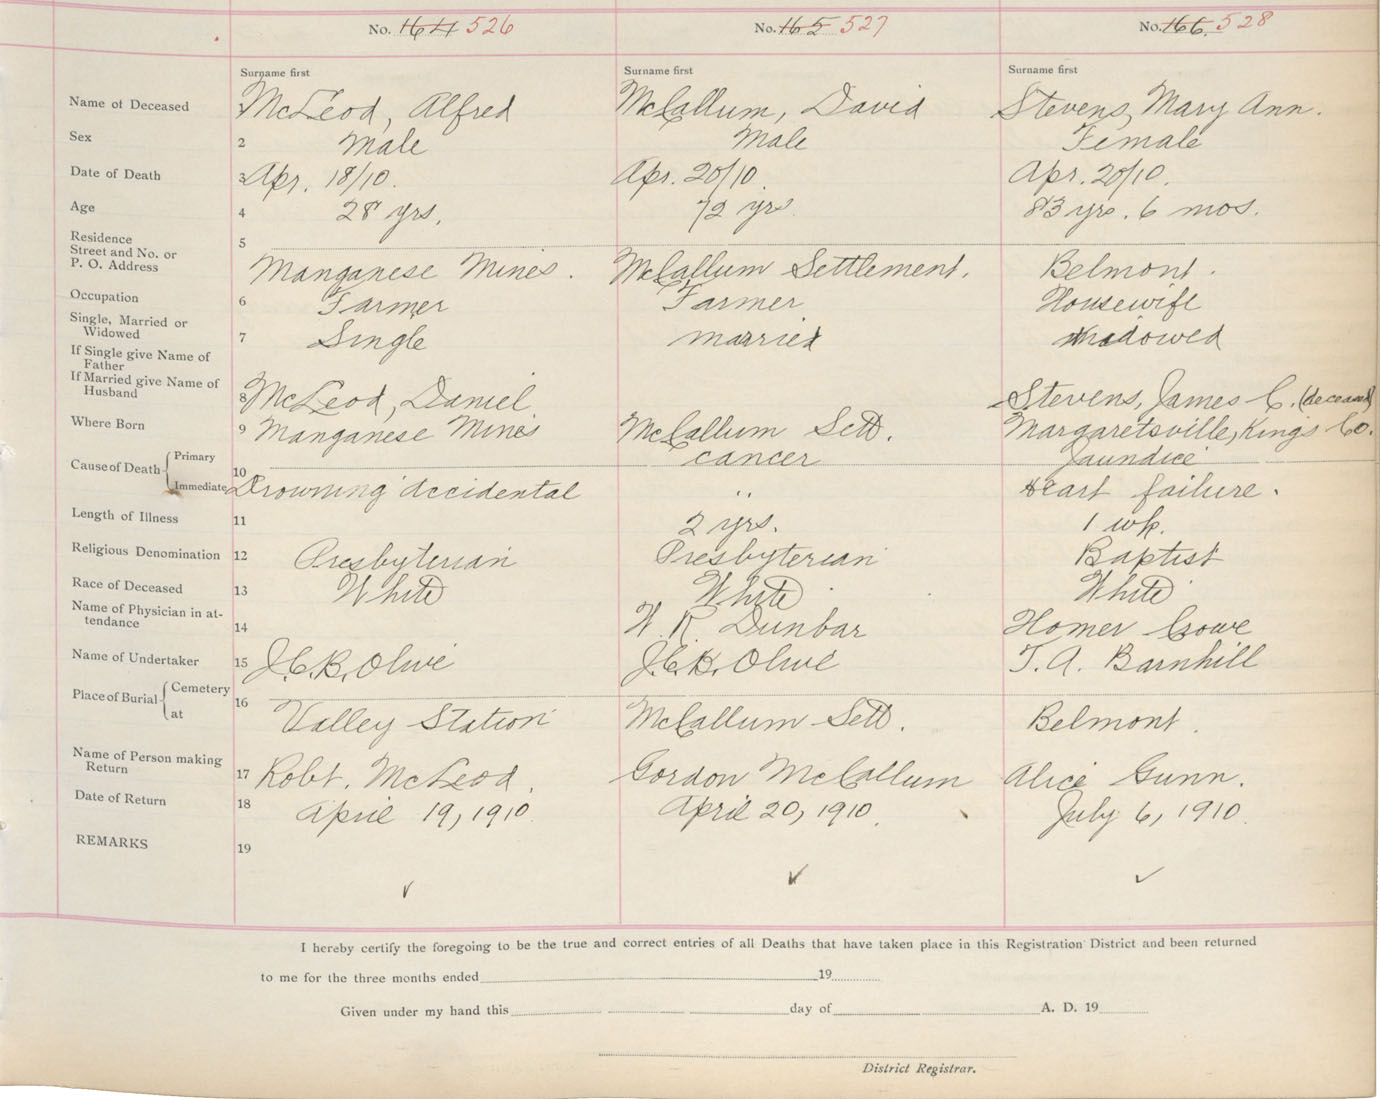 No. 164 526 No. 165 527 No. 166. 528
Surname first Surname first Surname first
Name of Deceased 1 McLeod, Alfred McCallum, David Stevens, Mary Ann.
Sex 2 Male Male Female
Date of Death 3 Apr. 18/10. Apr. 20/10. Apr. 20/10.
Age 4 28 yrs. 72 yrs. 83 yrs. 6 mos.
Residence 5
Street and No. or
P. O. Address Manganese Mines. McCallum Settlement. Belmont.
Occupation 6 Farmer Farmer Housewife
Single, Married or
Widowed 7 Single married widowed
If Single give Name of
Father
If Married give Name of
Husband 8 McLeod, Daniel Stevens, James C. (deceased)
Where Born 9 Manganese Mines McCallum Sett. Margaretsville, Kings Co.
Cause of Death Primary cancer Jaundice
10
Immediate Drowning accidental " Heart failure.
Length of Illness 11 2 yrs. 1 wk.
Religious Denomination 12 Presbyterian Presbyterian Baptist
Race of Deceased 13 White White White
Name of Physician in at-
tendance 14 W. R. Dunbar Homer Crowe
Name of Undertaker 15 J.C.B. Olive J.C.B. Olive T. A. Barnhill
Place of Burial Cemetery 16
at Valley Station McCallum Sett. Belmont.
Name of Person making
Return 17 Robt. McLeod. Gordon McCallum Alice Gunn.
Date of Return 18 April 19, 1910 April 20, 1910. July 6, 1910.
REMARKS 19
I hereby certify the foregoing to be the true and correct entries of all Deaths that have taken place in this Registration District and been returned
to me for the three months ended 19
Given under my hand this day of A. D. 19
District Registrar.